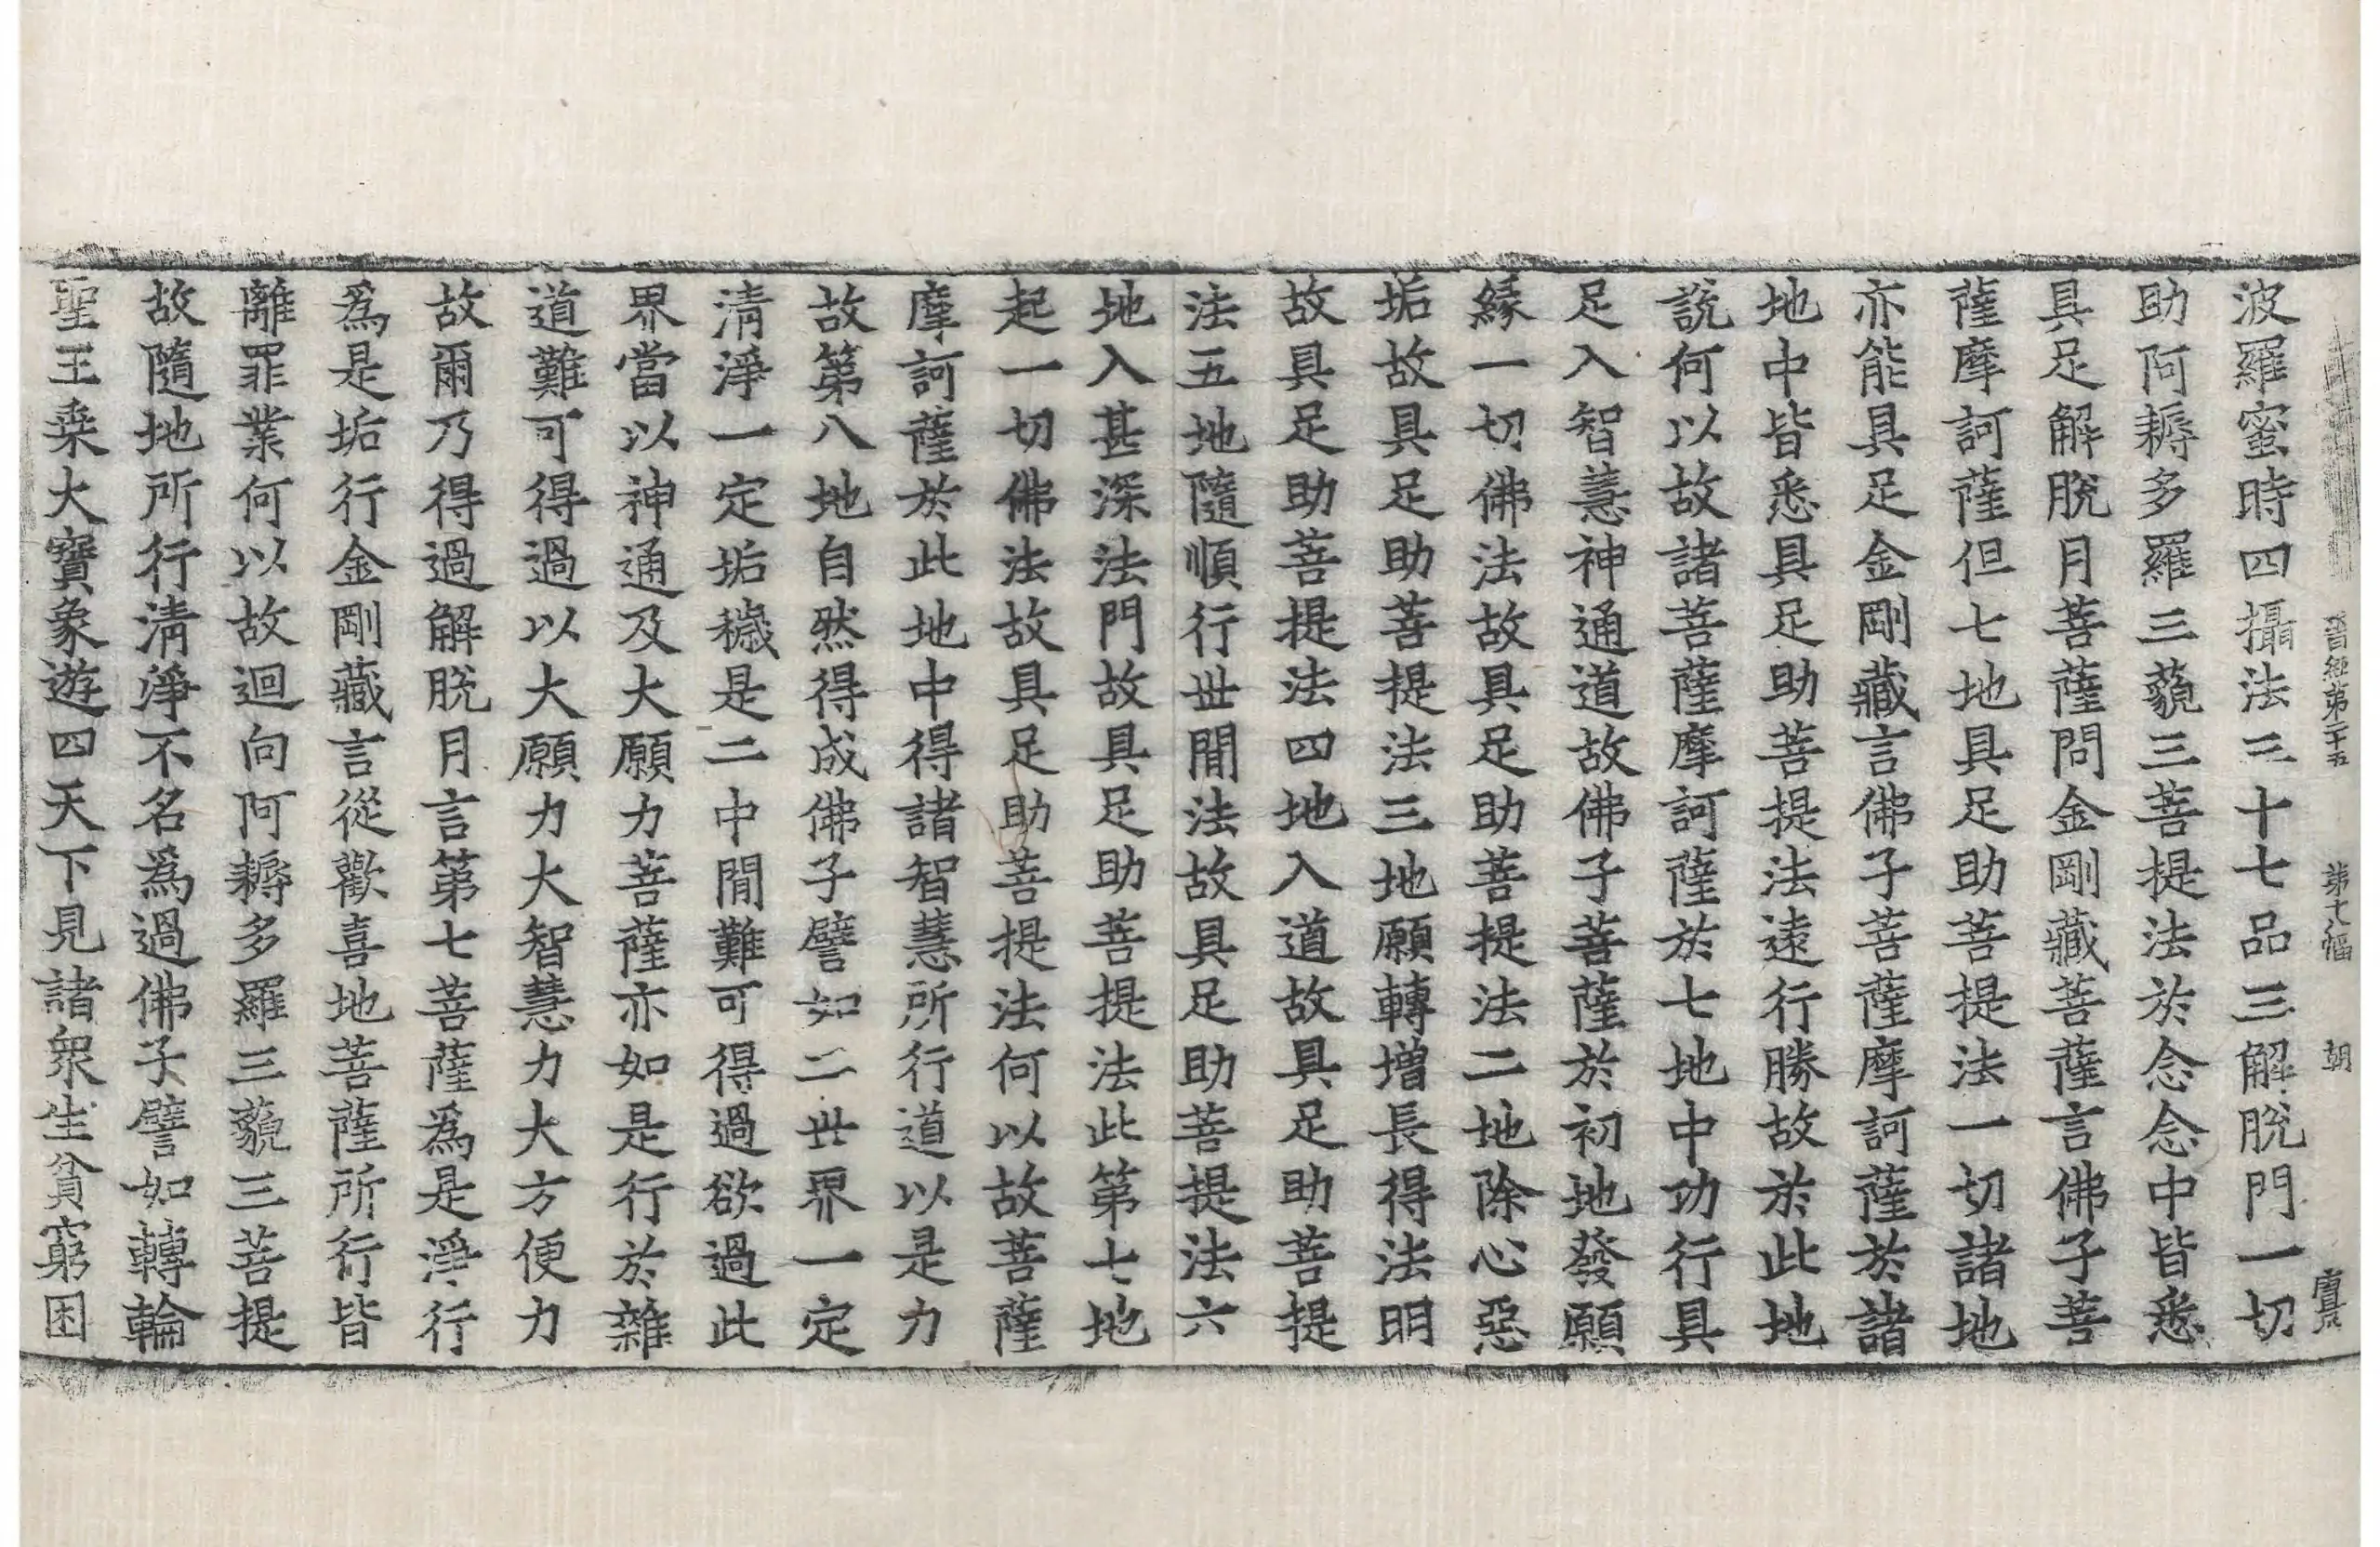 晋經第二十五 第七幅 朝
波羅蜜時四攝法三十七品三解脫門一切
助阿耨多羅三藐三菩提法於念念中皆悉
具足解脫月菩薩問金剛藏菩薩言佛子菩
薩摩訶薩但七地具足助菩提法一切諸地
亦能具足金剛藏言佛子菩薩摩訶薩於諸
地中皆悉具足助菩提法遠行勝故於此地
說何以故諸菩薩摩訶薩於七地中功行具
足入智慧神通道故佛子菩薩於初地發願
緣一切佛法故具足助菩提法二地除心惡
垢故具足助菩提法三地願轉增長得法明
故具足助菩提法四地入道故具足助菩提
法五地隨順行世間法故具足助菩提法六
地入甚深法門故具足助菩提法此第七地
起一切佛法故具足助菩提法何以故菩薩
摩訶薩於此地中得諸智慧所行道以是力
故第八地自然得成佛子譬如二世界一定
清淨一定垢穢是二中間難可得過欲過此
界當以神通及大願力菩薩亦如是行於雜
道難可得過以大願力大智慧力大方便力
故爾乃得過解脫月言第七菩薩為是淨行
為是垢行金剛藏言從歡喜地菩薩所行皆
離罪業何以故迴向阿耨多羅三藐三菩提
故隨地所行清淨不名為過佛子譬如轉輪
聖王乘大寶象遊四天下見諸眾生貧窮困